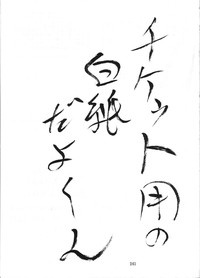 チケット用の
白紙
だよくん